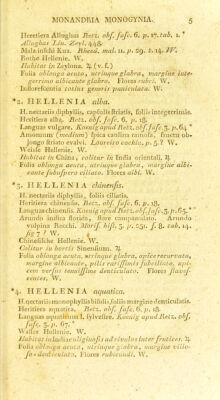 MONANDRIA MONOGYNIA. 5
Heretiera Allughas Retz. obs. fasc. 6. p. 17. tab. 1.
Allughas Lin. Zeyl. 448.
Mala inschi Kua. Rheed. mal. 11. p. 29. t. 14. W.
Rothe Hellenie. W.
Habitat in Zeylona. ♃ (v. s.)
Folia oblonga acuta, utrinque glabra, margine inte-
gerrimo albicante glabra. Flores rubri. W.
Inflorescentia totius generis paniculata. W.
*2. HELLENIA alba.
H. nectariis diphyllis, capsulis striatis, foliis integerrimis.
Heritiera alba. Retz. obs. fasc. 6. p. 18.
Languas vulgare. Koenig apud Retz. obs. fasc. 3. p. 64.
Amomum (medium) spica caudice remota, fructu ob-
longo striato ovali. Loureir. cochin. p. 5. ? W.
Weisse Hellenie. W.
Habitat in China, colitur in India orientali. ♃
Folia oblonga acuta, utrinque glabra, margine albi-
cante subaspero ciliato. Flores albi. W.
*3. HELLENIA chinensis.
H. nectariis diphyllis, foliis ciliatis.
Heritiera chinensis. Retz. obs. fasc. 6. p. 18.
Languas chinensis. Koenig apud Retz. obs. fasc. 3. p. 65.
Arundo indica florida, flore campanulato. Arundo
vulpina Bocchi. Moris. hist. 3. p. 251. s. 8. tab. 14.
fig. 7 ? W.
Chinesische Hellenie. W.
Colitur in hortis Sinensium. ♃
Folia oblonga acuta, utrinque glabra, apice recurvata,
margine albicante, pilis rarissimis subciliato, api-
cem versus tenuissime denticulato. Flores flaves-
centes. W.
*4. HELLENIA aquatica.
H. nectariis monophyllis bifidis, foliis margine denticulatis.
Heritiera aquatica. Retz. obs. fasc. 6. p. 18.
Languas aquaticum s. sylvestre. Koenig apud Retz. obs.
fasc. 3. p. 67.
Wasser Hellenie. W.
Habitat in locis uliginosis ad rivulos inter frutices. ♃
Folia oblonga acuta, utrinque glabra, margine villo-
so-denticulato. Flores rubicundi. W.